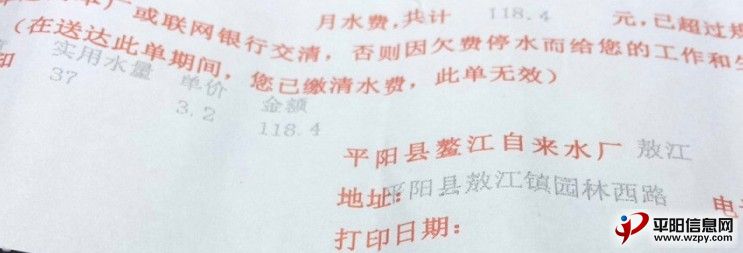 月水费,共计 118.4 元,已超过规
厂或联网银行交清，否则因欠费停水而给您的工作和生
(在送达此单期间，您已缴清水费，此单无效)
实用水量 单价 金额
印 37 3.2 118.4
平阳县鳌江自来水厂 敖江
地址:平阳县敖江镇园林西路 电
打印日期:
平阳信息网
www.wzpy.com